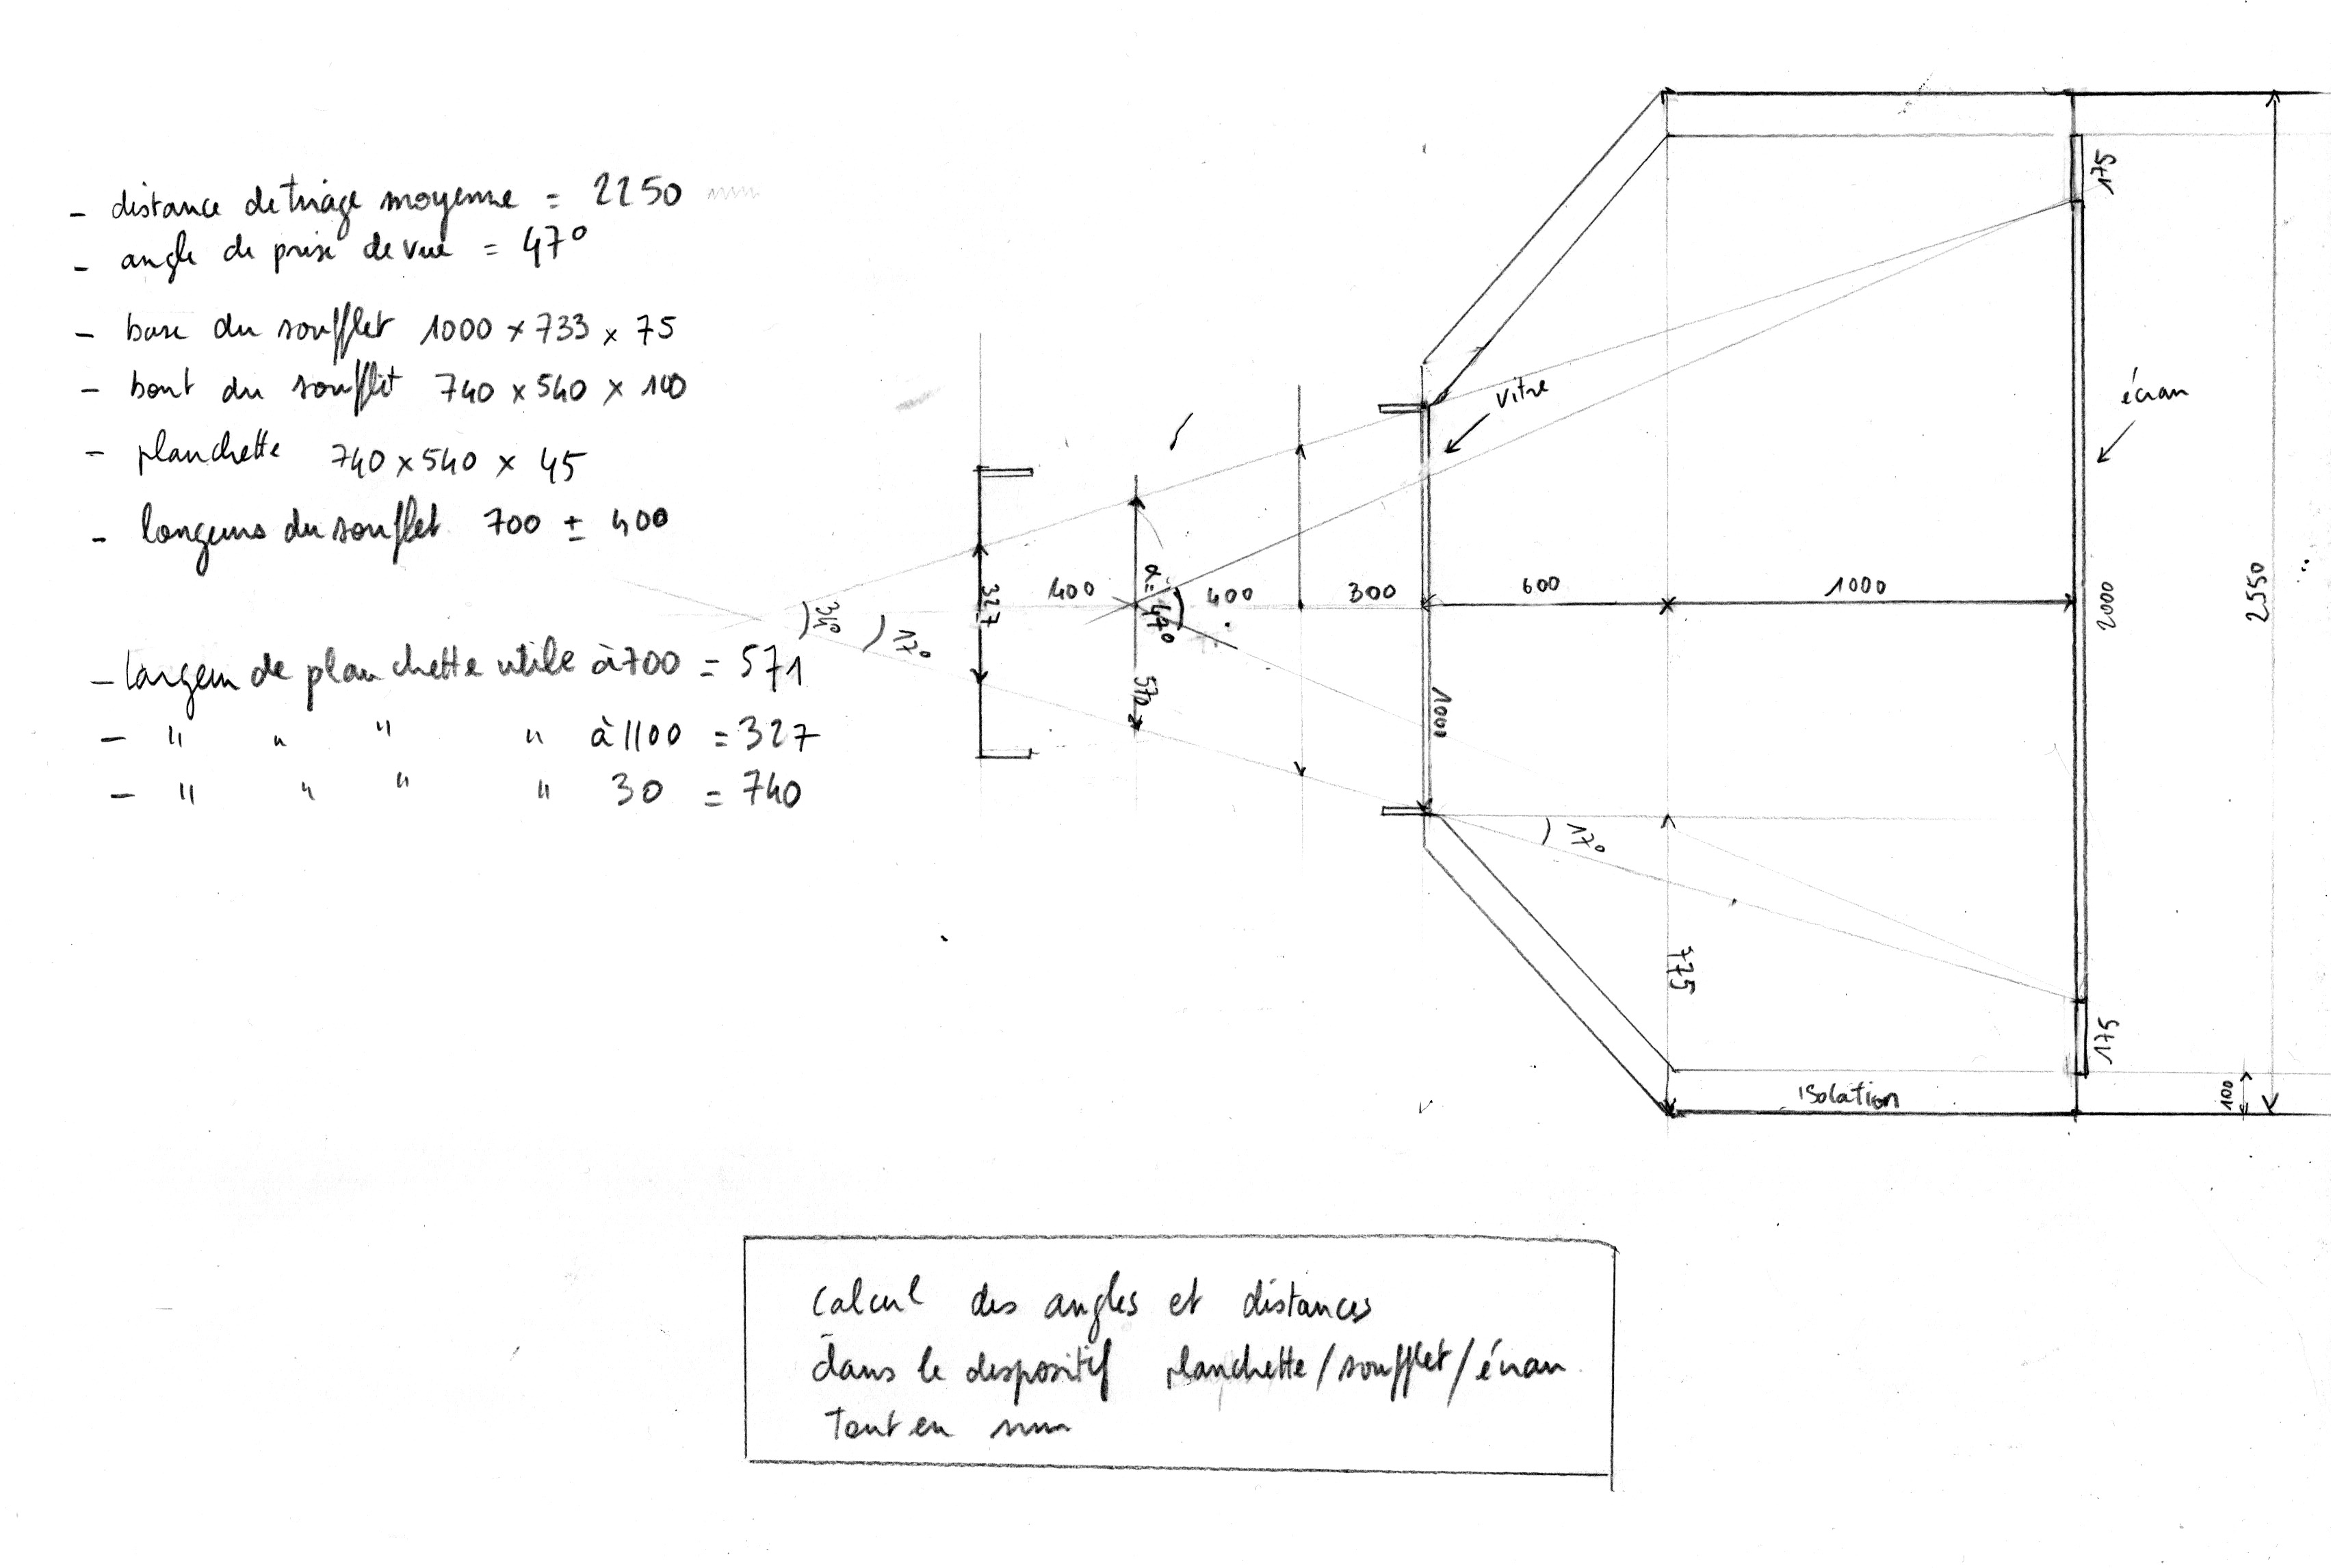 - distance de tirage moyenne = 2250 mm
- angle de prise de vue = 47°
- base du soufflet 1000 x 733 x 75
- bout du soufflet 740 x 540 x 100
- planchette 740 x 540 x 45
- longueurs du soufflet 700 ± 400
- largeur de planchette utile à 700 = 571
- " " " " à 1100 = 327
- " " " " 30 = 740
34°
17°
327
400
α = 47°
570
400
300
1000
vitre
600
1000
17°
775
isolation
175
écran
2000
2550
175
100
Calcul des angles et distances
dans le dispositif planchette/soufflet/écran
Tout en mm